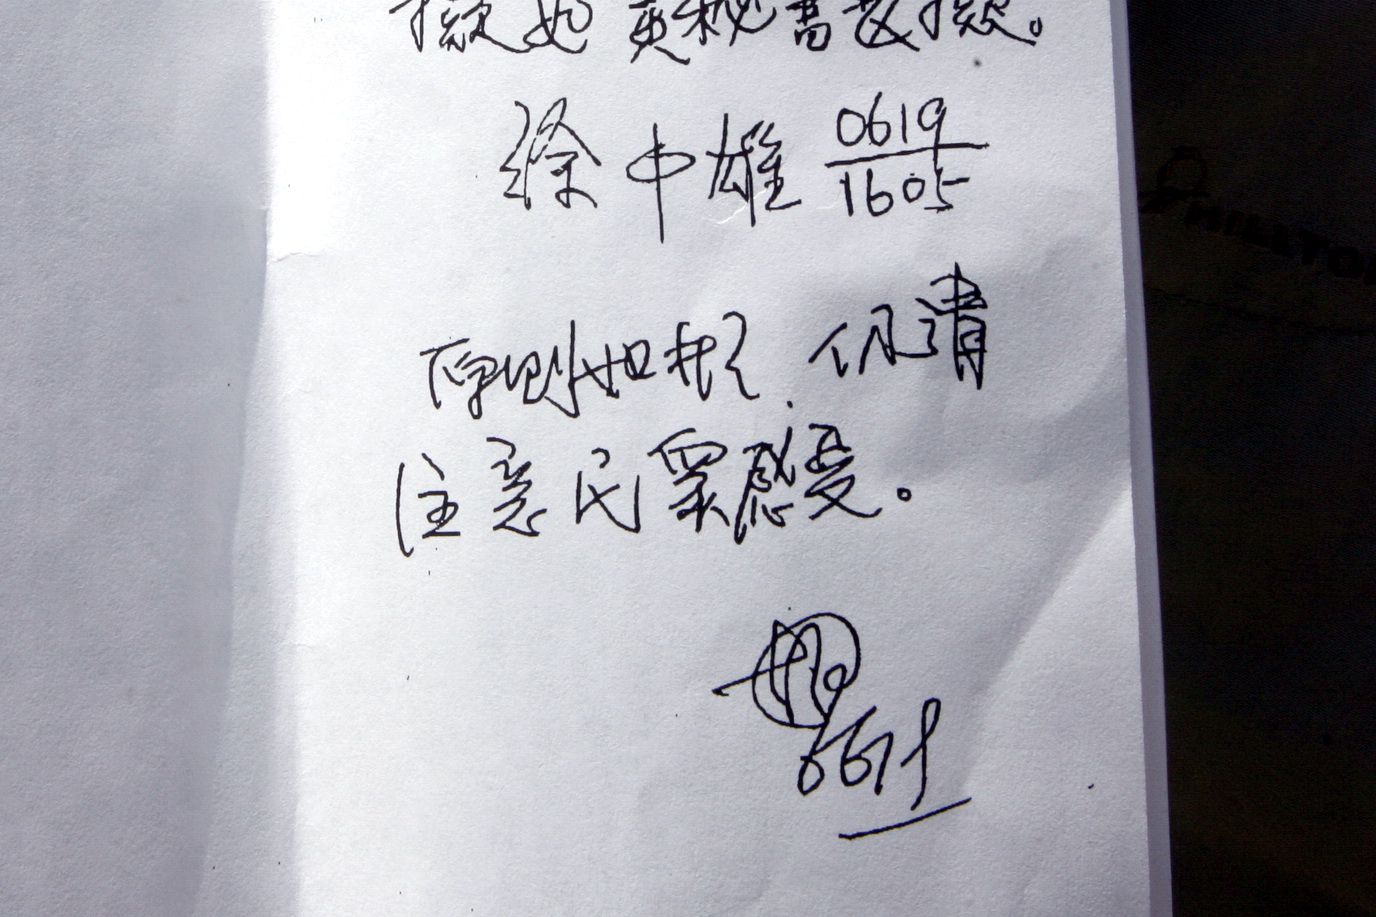 擬如黃秘書長擬。
徐中雄 0619
1605
原則如擬，但請
注意民眾感受。
0619